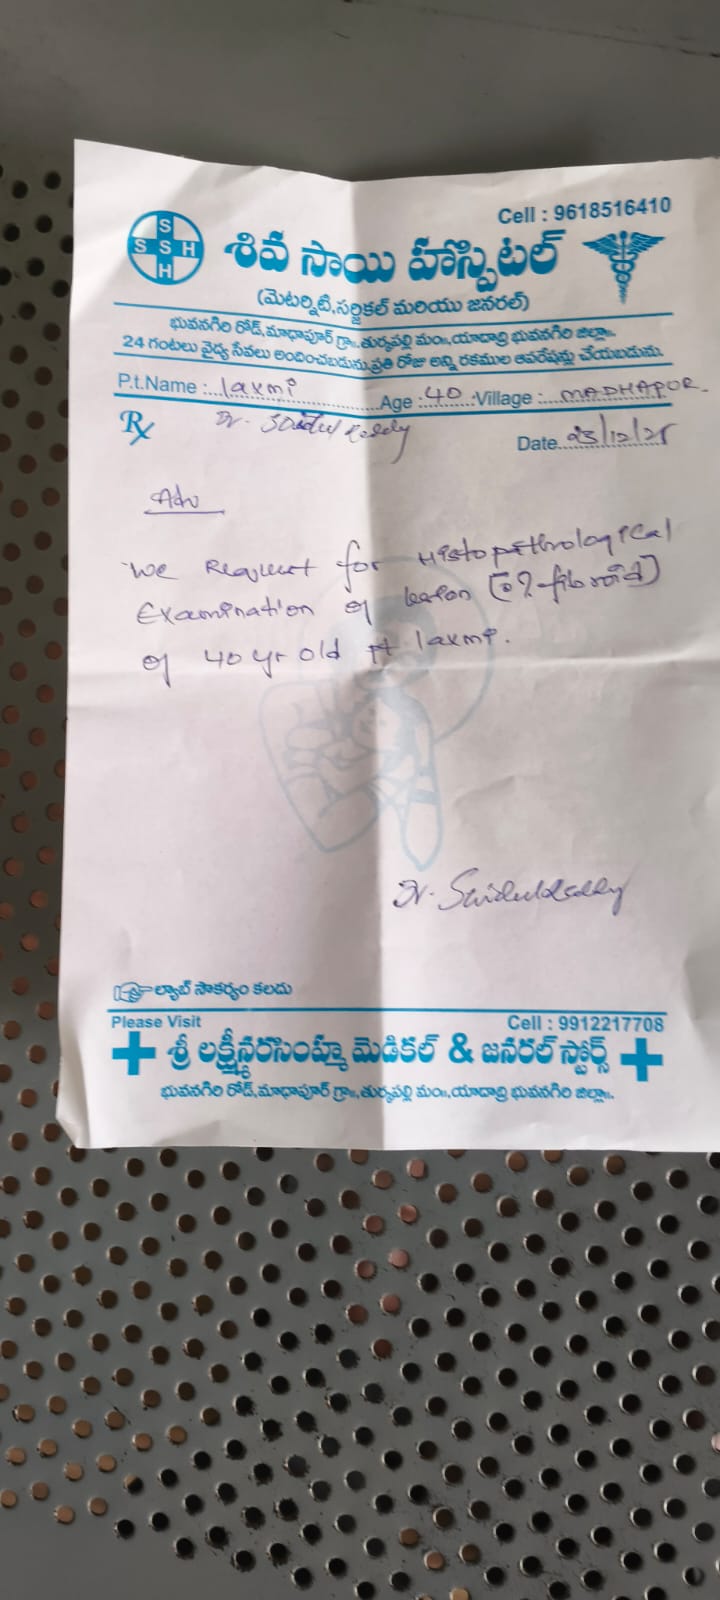 Cell : 9618516410
S
S S H
H
శివ సాయి హాస్పిటల్
(మెటర్నిటి,సర్జికల్ మరియు జనరల్)
భువనగిరి రోడ్,మాధాపూర్ గ్రా॥,తుర్కపల్లి మం॥,యాదాద్రి భువనగిరి జిల్లా॥.
24 గంటలు వైద్య సేవలు అందించబడును,ప్రతి రోజు అన్ని రకముల ఆపరేషన్లు చేయబడును.
P.t.Name : laxmi Age : 40 Village : MADHAPUR
Rx Dr. Saidul Reddy
Date 23/12/25
Adv
We Request for Histopathological
Examination of lesion [? fibroid]
of 40 yr old pt laxmi.
Dr. Saidul Reddy
ల్యాబ్ సౌకర్యం కలదు
Please Visit Cell : 9912217708
శ్రీ లక్ష్మీనరసింహ్మ మెడికల్ & జనరల్ స్టోర్స్
భువనగిరి రోడ్,మాధాపూర్ గ్రా॥,తుర్కపల్లి మం॥,యాదాద్రి భువనగిరి జిల్లా॥.